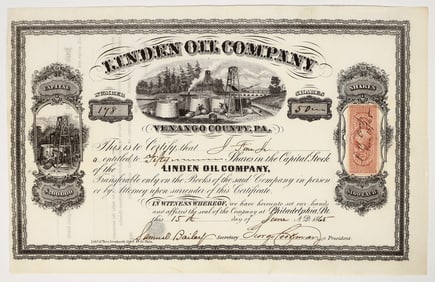 LINDEN OIL COMPANY
CAPITAL
SHARES
NUMBER
SHARES
178
50
VENANGO COUNTY, PA.
This is to Certify, that J
is entitled to Fifty Shares in the Capital Stock
of the LINDEN OIL COMPANY,
Transferable only on the Books of the said Company in person
or by Attorney upon surrender of this Certificate.
IN WITNESS WHEREOF, we have hereunto set our hands
and affixed the seal of the Company at Philadelphia, Pa.
this 15th day of June A.D. 1865
Samuel Bailey Secretary George President